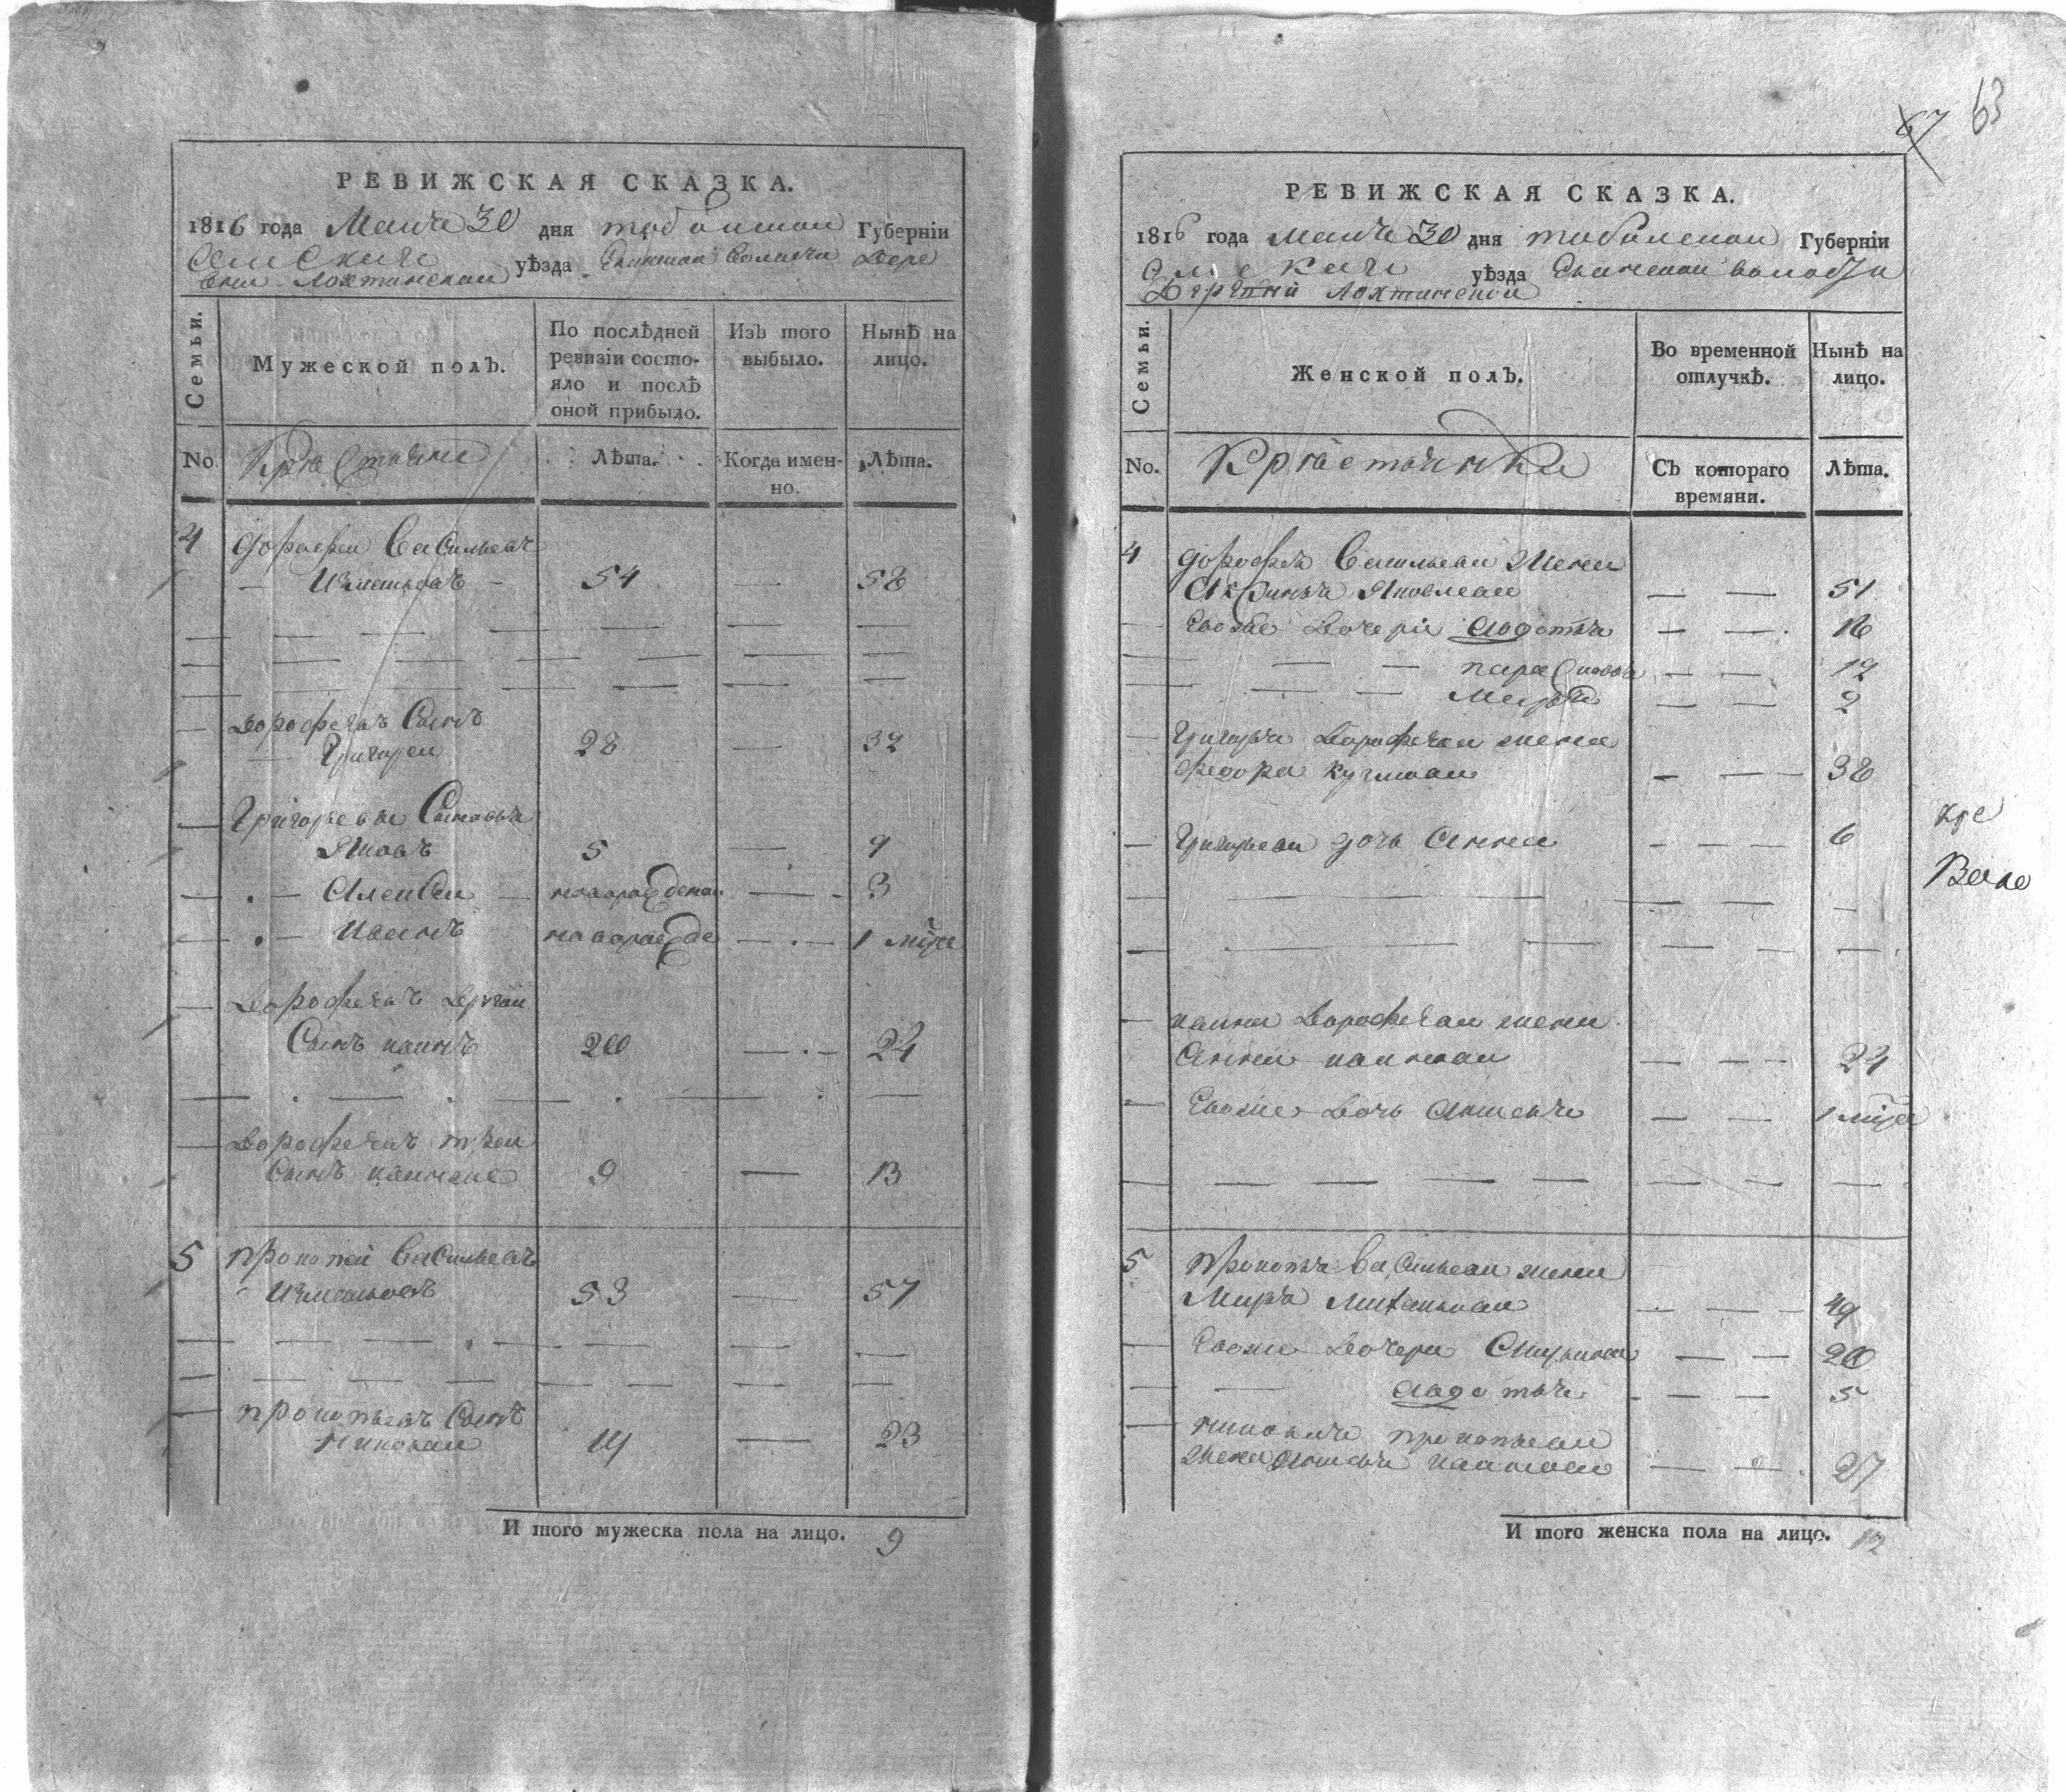 РЕВИЖСКАЯ СКАЗКА.
1816 года Маия 30 дня тобольской Губерніи
Омскаго уѣзда Еланской волости Дере
вни Лохтинской
Семьи.
Мужеской полъ.
По послѣдней ревизіи состояло и послѣ оной прибыло.
Изъ того выбыло.
Нынѣ на лицо.
No.
Крестьяне
Лѣта.
Когда именно.
Лѣта.
4 дорофеи Васильевъ
Измаиловъ 54 — 58
дорофеевъ Сынъ
Григореи 28 — 32
Григорьевы Сыновья
Яковъ 5 — 9
Алексеи новорожденои — 3
Иванъ новорожде — 1 мца
дорофеевъ другои
Сынъ иванъ 20 — 24
дорофеевъ третеи
Сынъ иванже 9 — 13
5 прокопеи Васильевъ
Измаиловъ 53 — 57
прокопьевъ Сынъ
николаи 19 — 23
И того мужеска пола на лицо. 9
67 63
РЕВИЖСКАЯ СКАЗКА.
1816 года маия 30 дня тобольской Губерніи
Омскаго уѣзда Еланской волости
Деревни Лохтинской
Семьи.
Женской полъ.
Во временной отлучкѣ.
Нынѣ на лицо.
No.
Крестьянки
Съ котораго времяни.
Лѣта.
4 дорофея Васильева жена
Аксинья Яковлева — — 51
Евоже дочери авдотья — — 16
парасковья — — 12
Марья — — 2
Григорья дорофеева жена
федора — — 38
Григорьева дочь Анна — — 6
ивана дорофеева жена
Анна иванова — — 24
Евоже дочь — — 1 мца
5 Прокопья Васильева жена
Марья Михаилова — — 49
Евоже дочери — — 20
авдотья — — 5
николая прокопьева
жена иванова — — 27
И того женска пола на лицо. 12